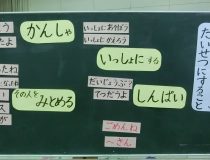 たいせつにすること
いっしょにあそぼう
いっしょにかえろう
いっしょにする
だいじょうぶ?
てつだうよ
しんぱい
ごめんね
～さん
かんしゃ
その人を
みとめる